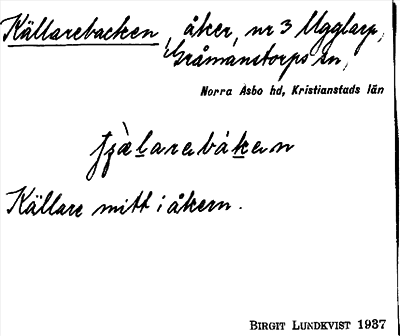 Källarebacken, åker, nr 3 Ugglarp,
Gråmanstorps sn,
Norra Åsbo hd, Kristianstads län
Källare mitt i åkern.
BIRGIT LUNDKVIST 1937